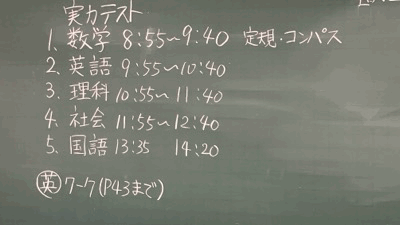 実力テスト
1. 数学 8:55〜9:40 定規・コンパス
2. 英語 9:55〜10:40
3. 理科 10:55〜11:40
4. 社会 11:55〜12:40
5. 国語 13:35 14:20
英 ワーク(P43まで)